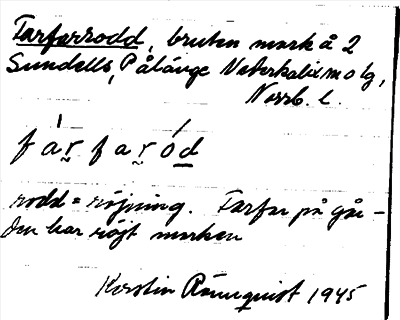 Farfarrodd, bruten mark å 2
Sundells, Pålänge Nederkalix m o lg,
Norrb. l.
f a̍ r̰ f a r̰ ó d̲
rodd = röjning. Farfar på går-
den har röjt marken
Kerstin Rönnquist 1945